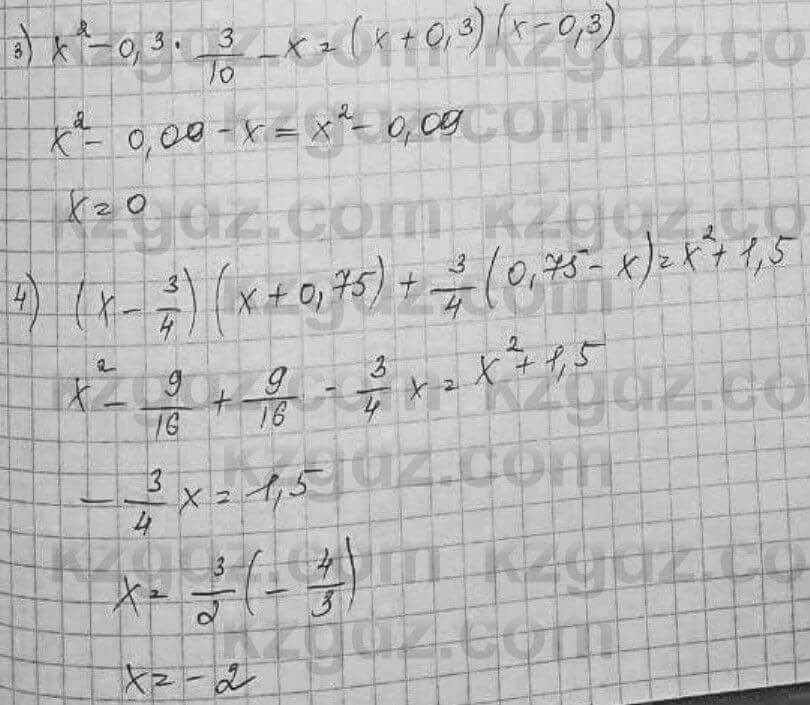 3) x² - 0,3 · 3/10 - x = (x + 0,3)(x - 0,3)
x² - 0,09 - x = x² - 0,09
x = 0
4) (x - 3/4)(x + 0,75) + 3/4 (0,75 - x) = x² + 1,5
x² - 9/16 + 9/16 - 3/4 x = x² + 1,5
- 3/4 x = 1,5
x = 3/2 (- 4/3)
x = - 2
kzgdz.com